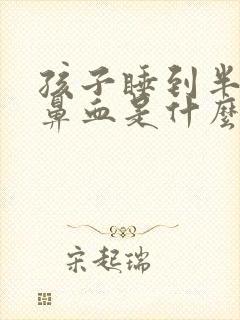 孩子睡到半
鼻血是什麼
宋起瑞